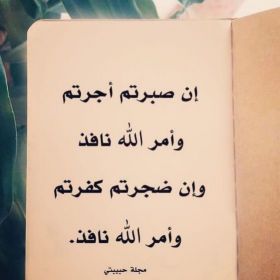 إن صبرتم أجرتم
وأمر الله نافذ
وإن ضجرتم كفرتم
وأمر الله نافذ.
مجلة حبيبتي